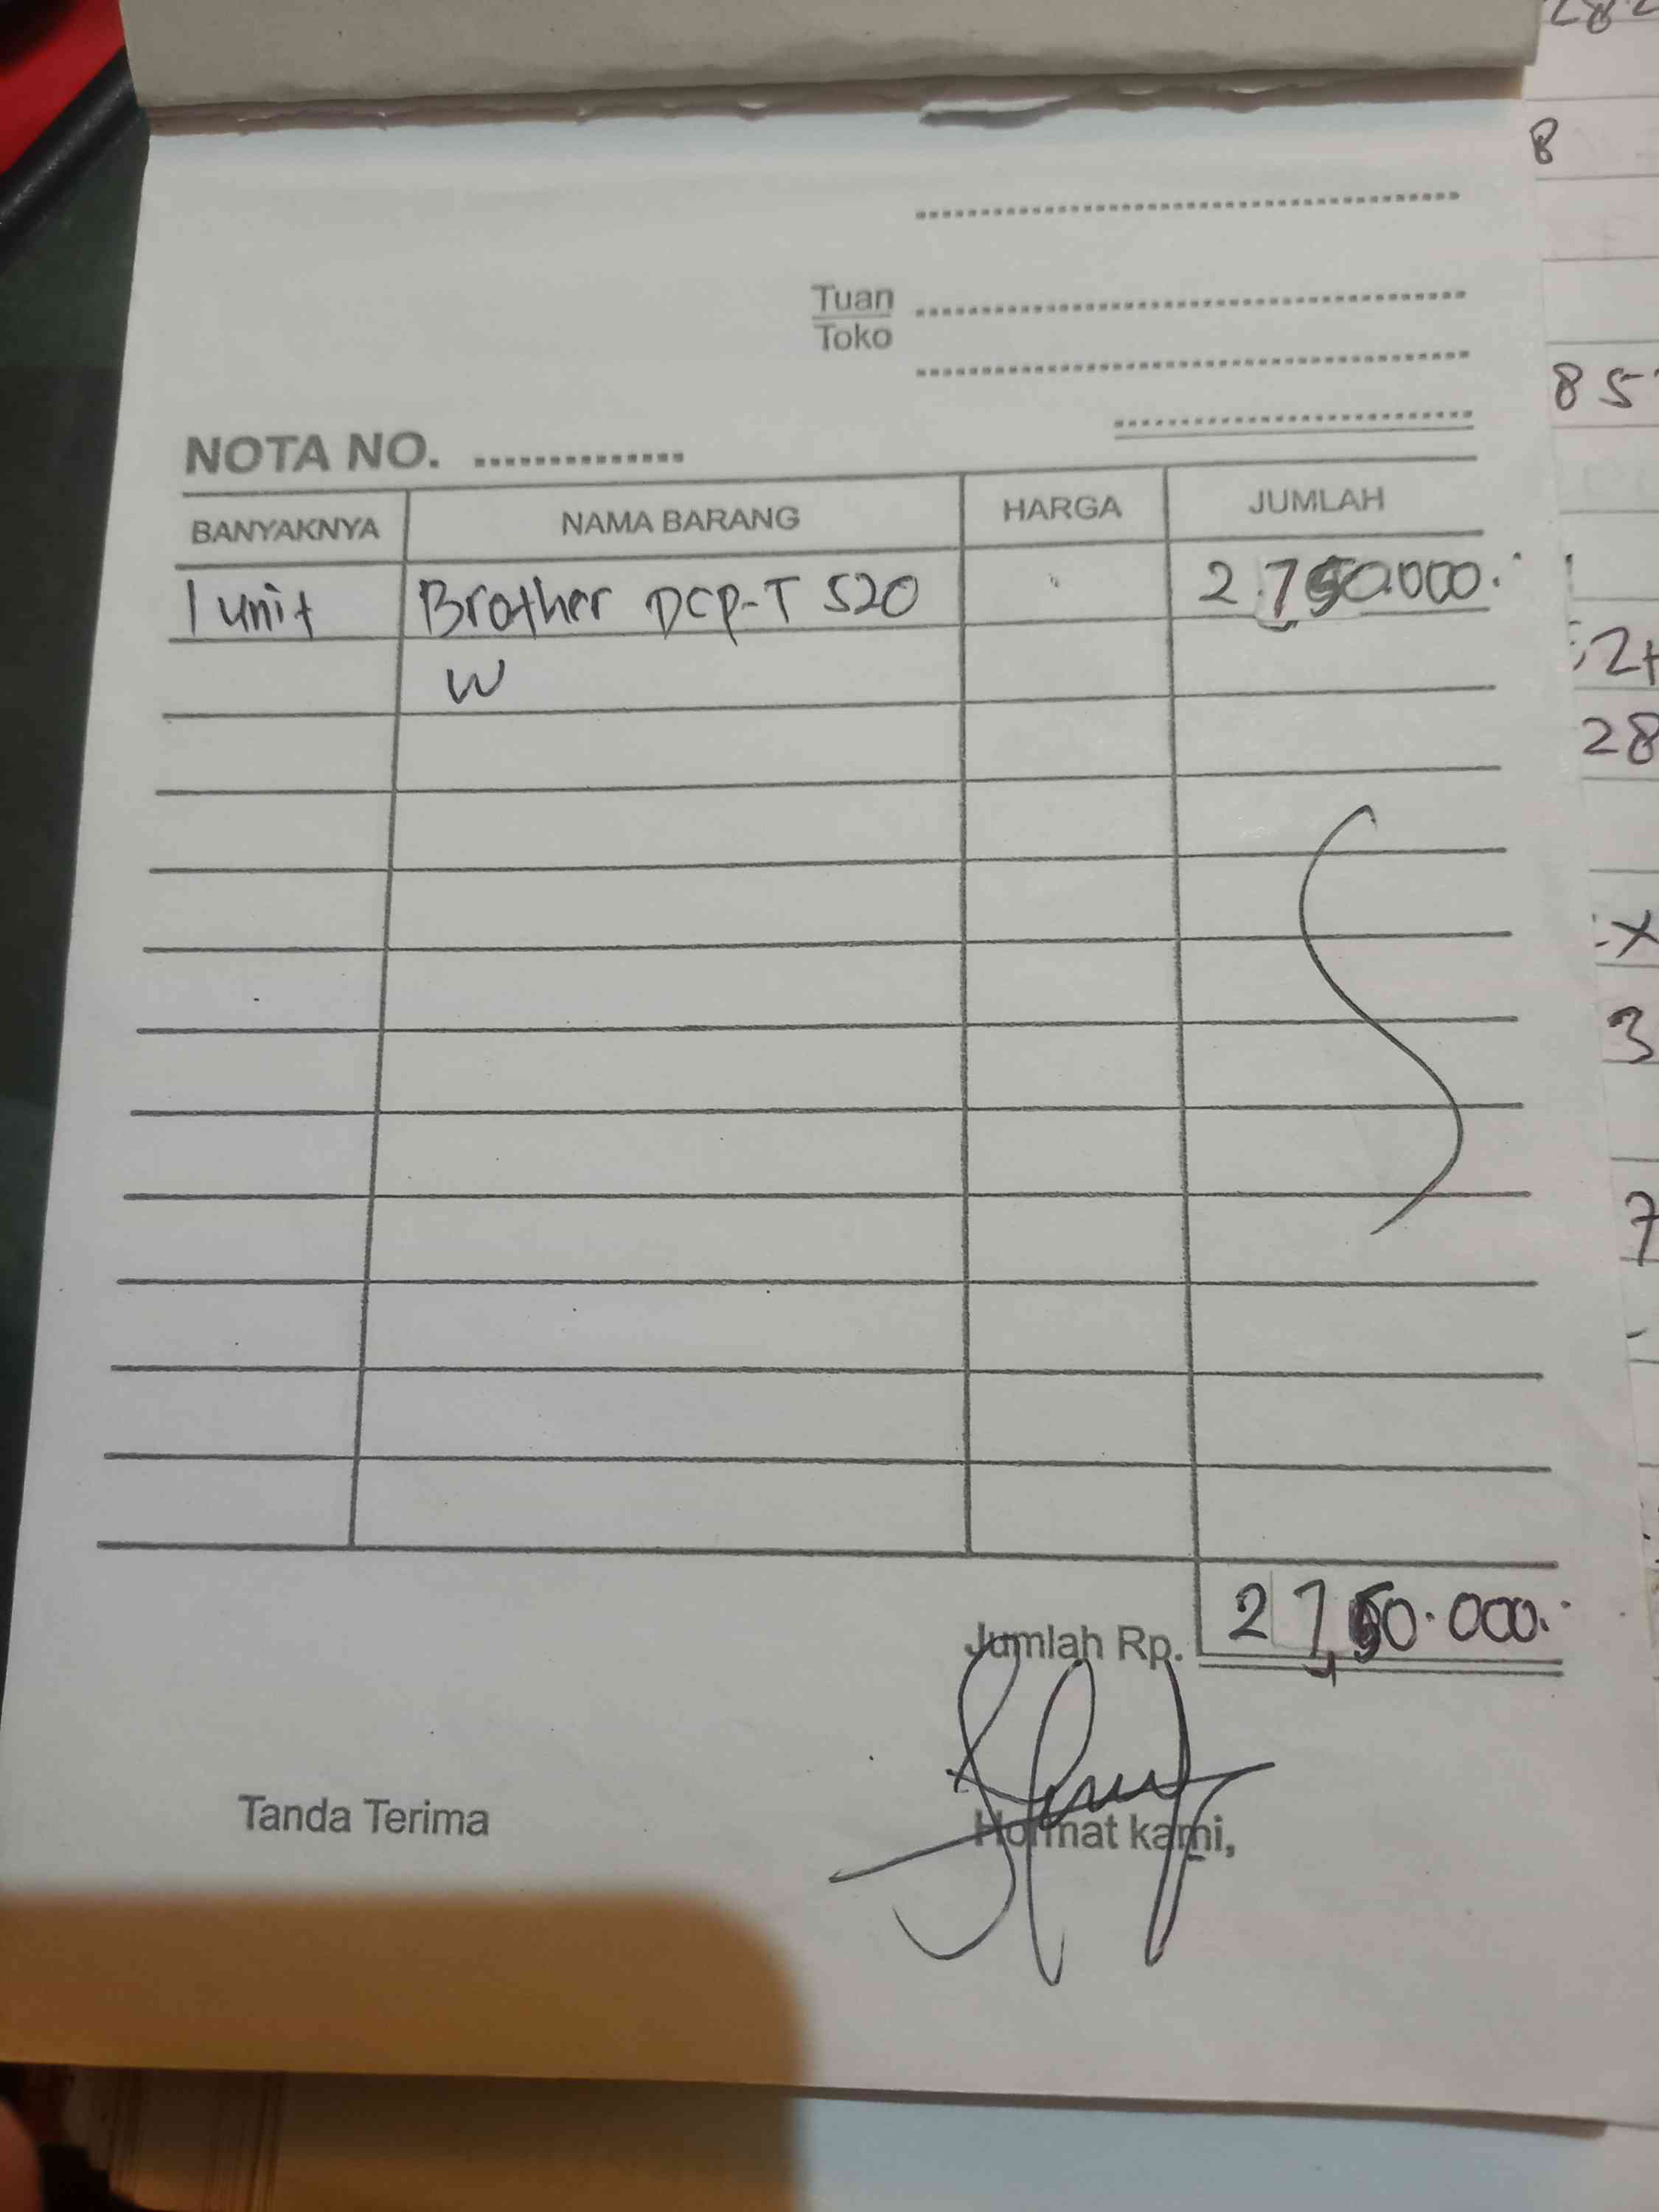 282
8
Tuan
Toko
85
NOTA NO. ..............
BANYAKNYA NAMA BARANG HARGA JUMLAH
1 unit Brother DCP-T 520 2.750.000.
W
52+
28
3
7
Jumlah Rp. 2.750.000.
Tanda Terima Hormat kami,